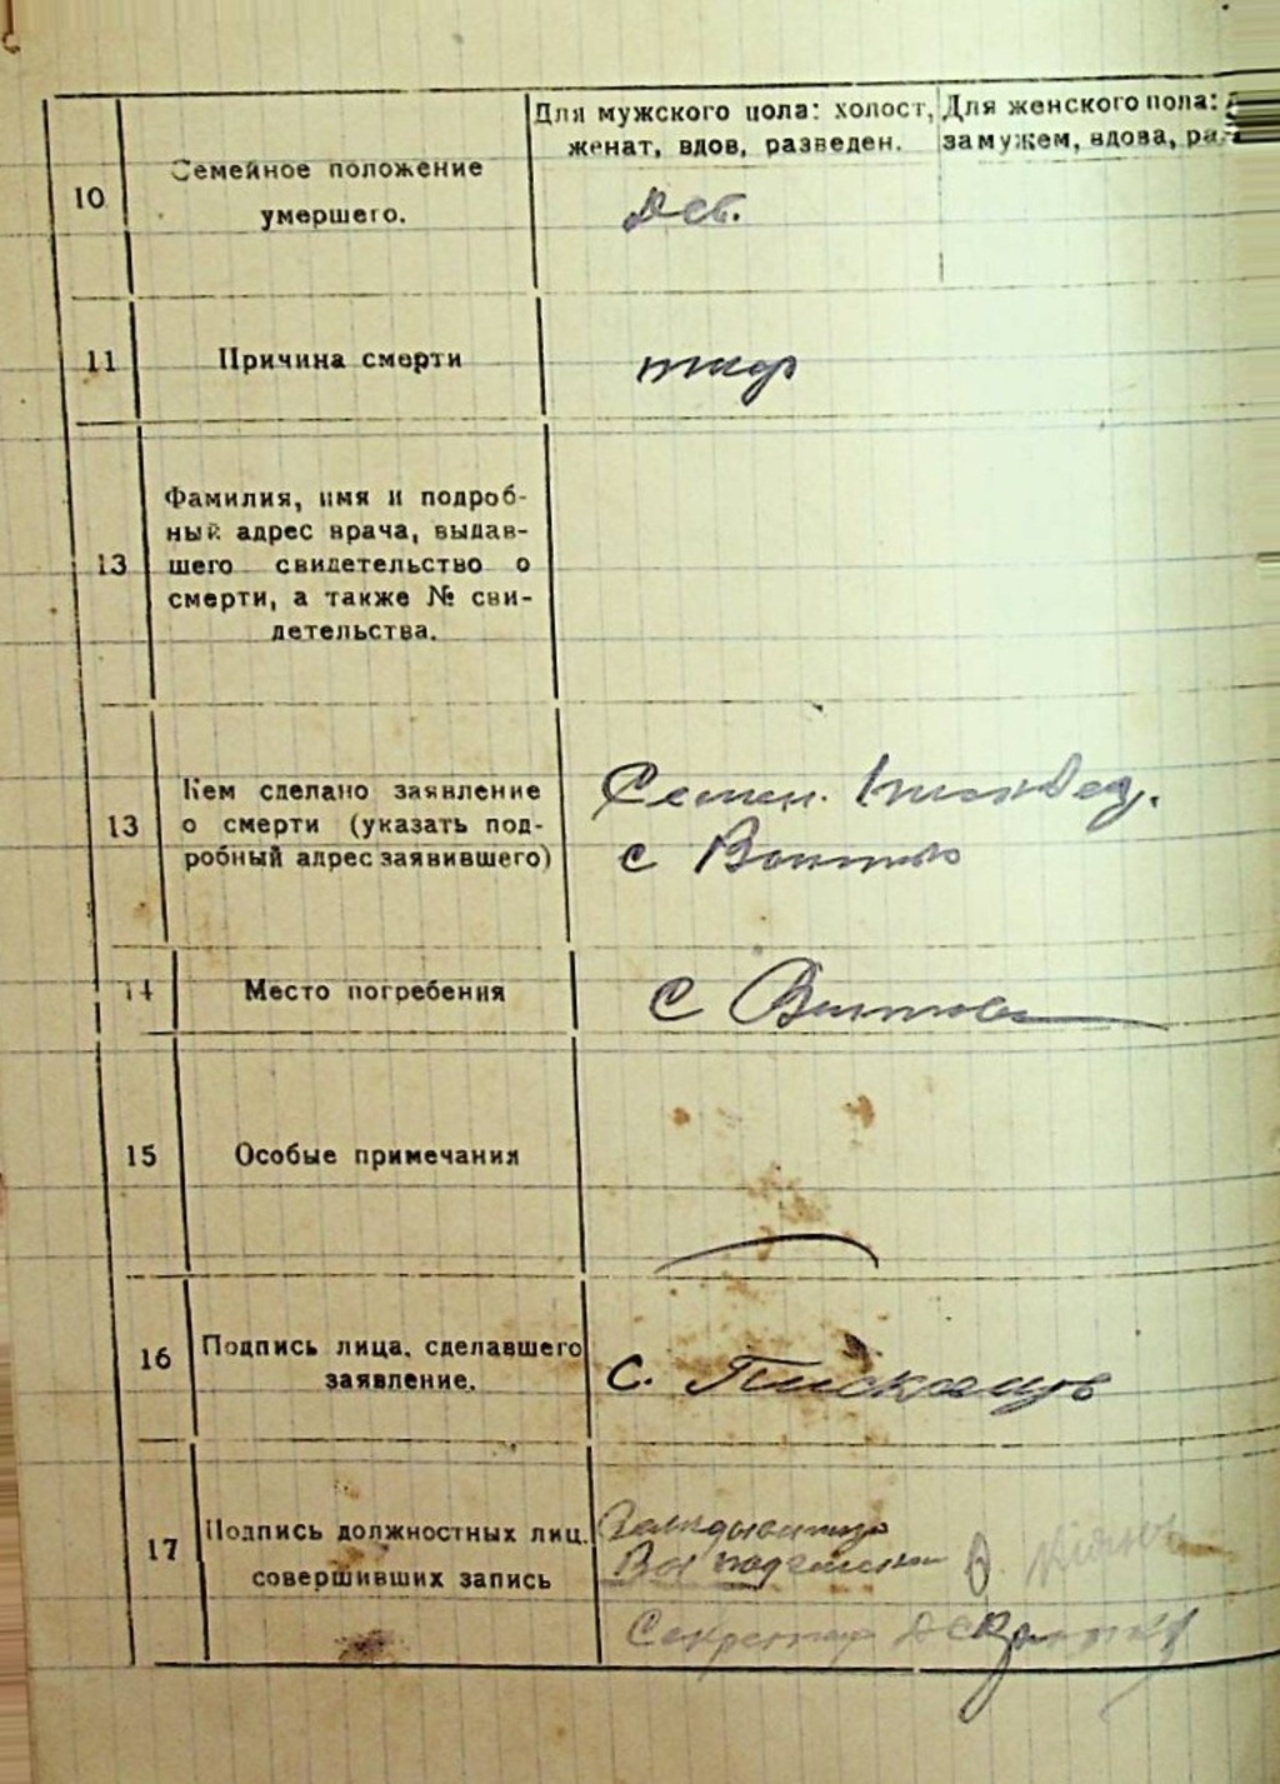 Для мужского пола: холост,
женат, вдов, разведен.
Для женского пола:
замужем, вдова, ра
10
Семейное положение
умершего.
Дев.
11
Причина смерти
тиф
13
Фамилия, имя и подроб-
ный адрес врача, выдав-
шего свидетельство о
смерти, а также № сви-
детельства.
13
Кем сделано заявление
о смерти (указать под-
робный адрес заявившего)
Семен.
с
14
Место погребения
с
15
Особые примечания
16
Подпись лица, сделавшего
заявление.
С.
17
Подпись должностных лиц.
совершивших запись
Секретар